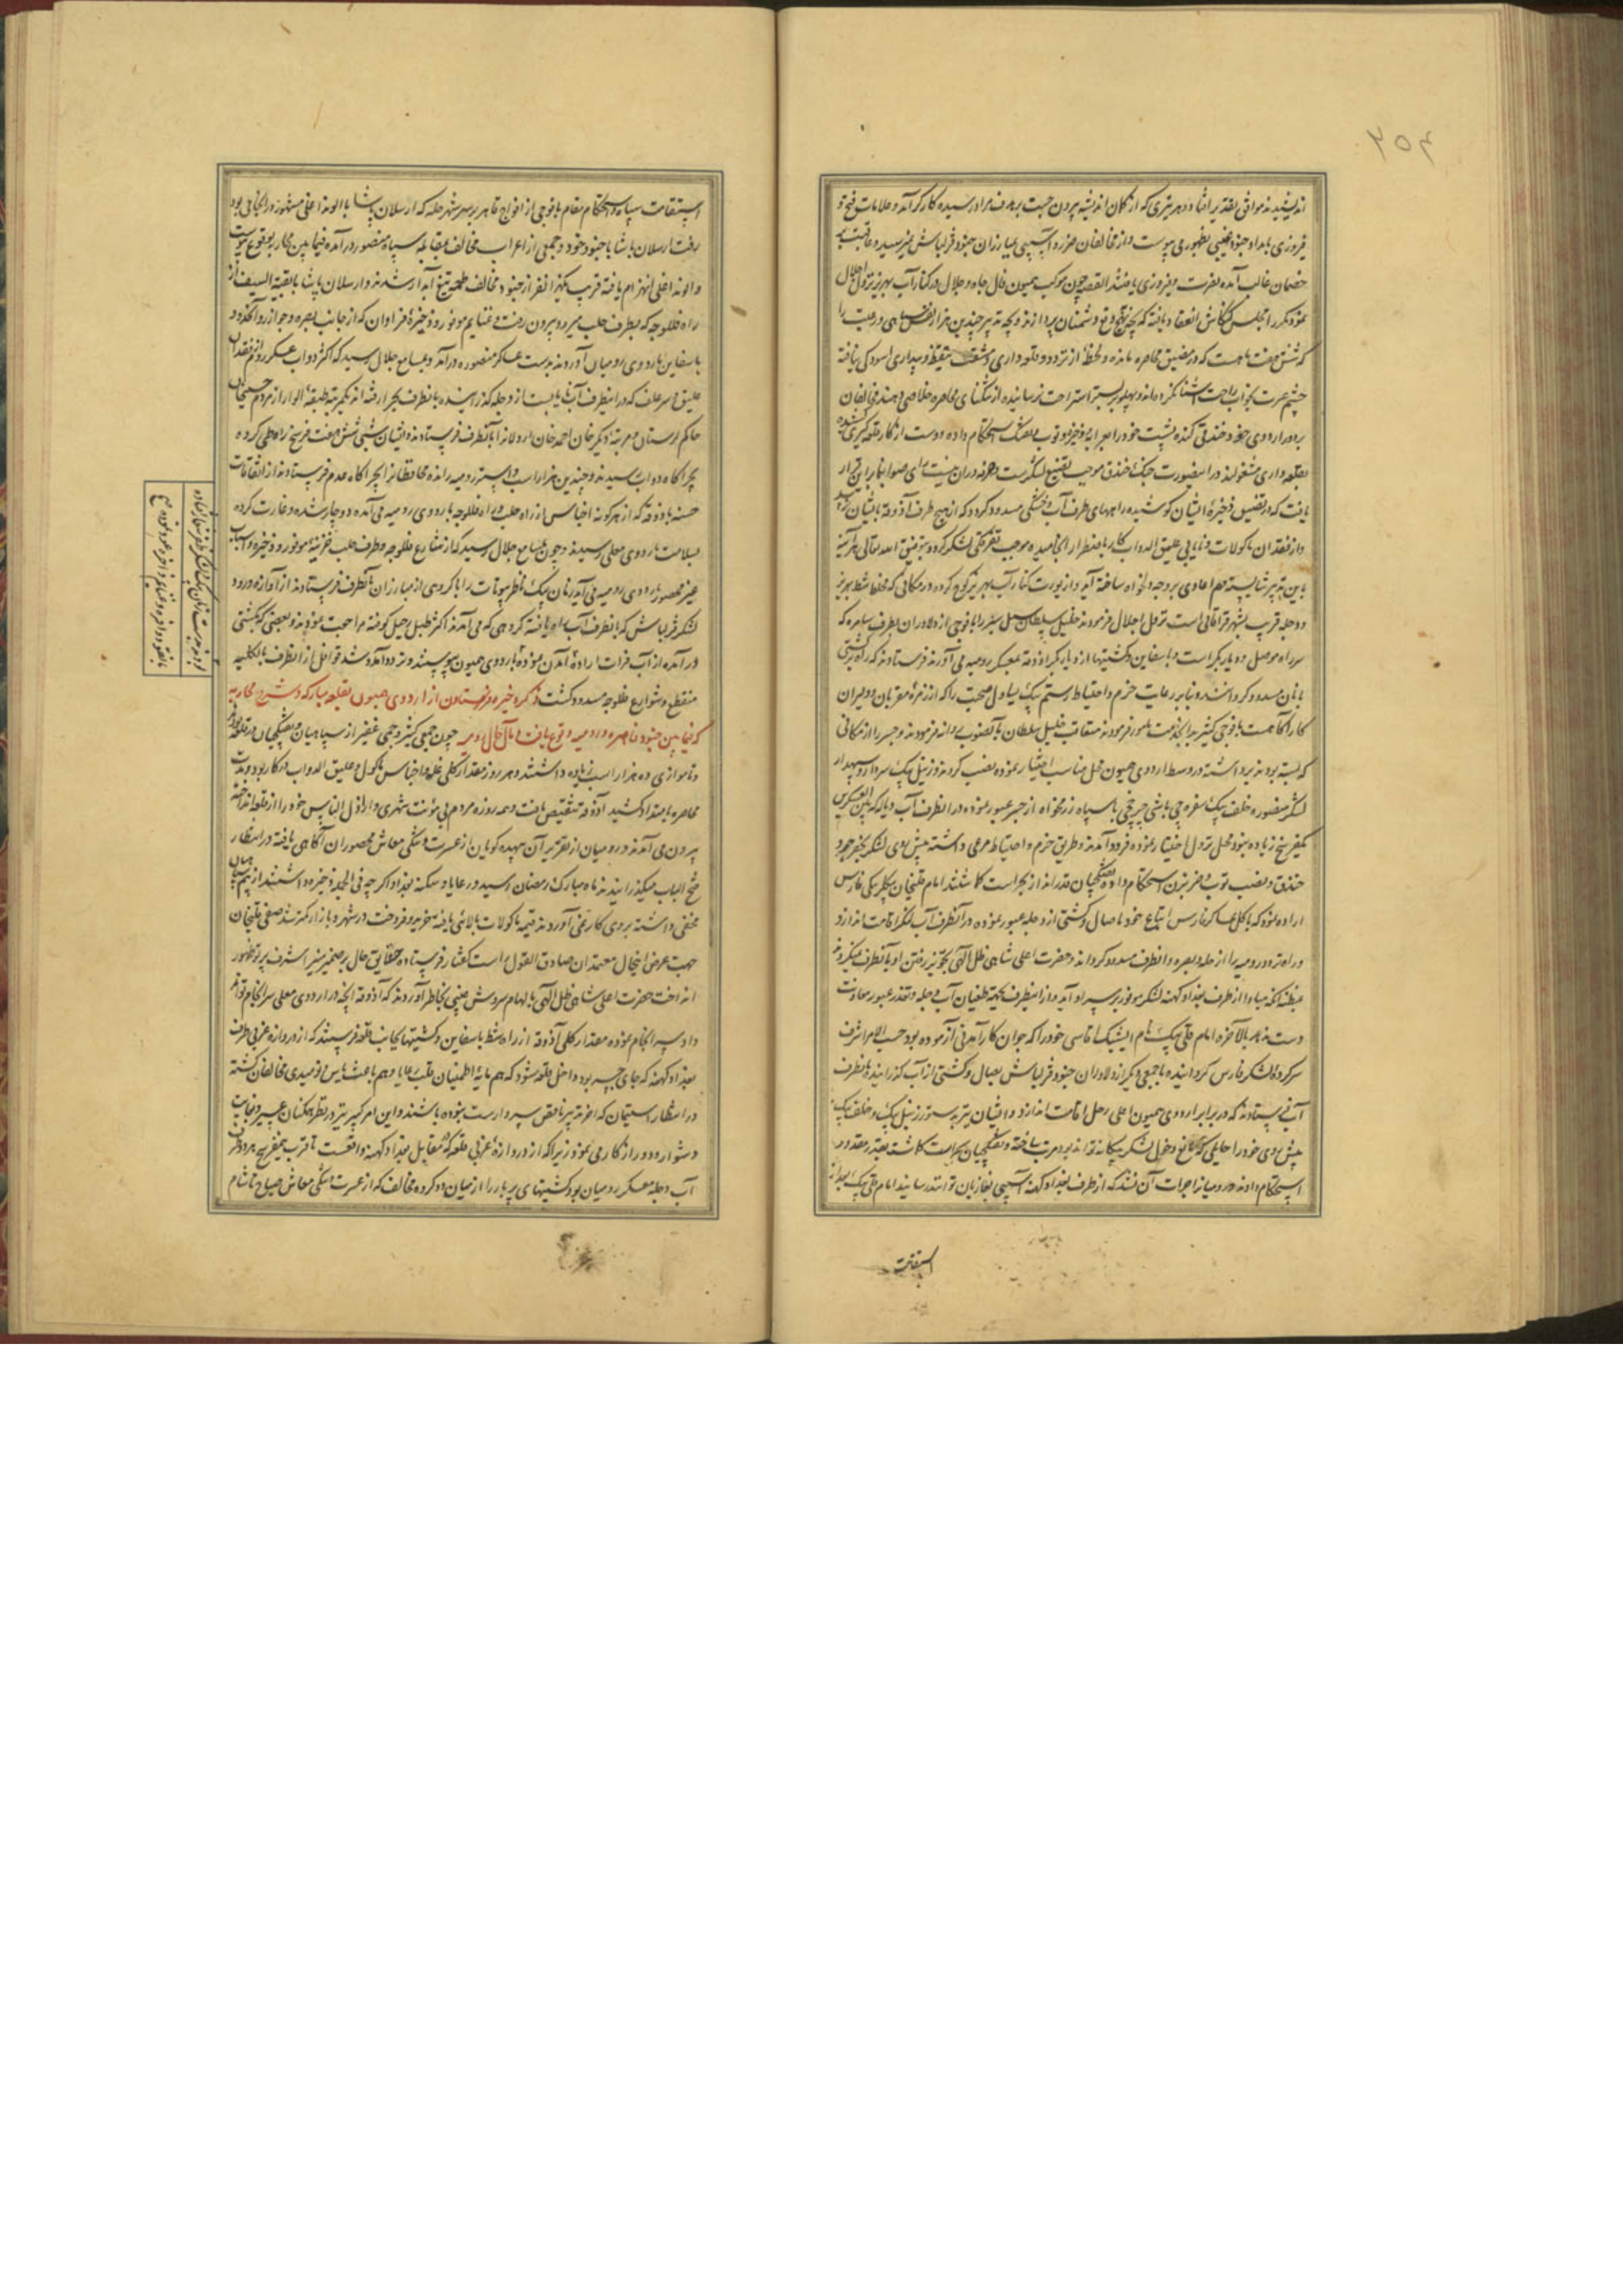 ۲۵۴
اندیشیدند موافق تقدیر افتاد و هر تیری که از کمان اندیشه بیرون جست بر هدف مراد رسیده کارگر آمد و علامات فتح و
فیروزی بامداد جنود غیبی بظهور می پیوست و از مخالفان ضرر و آسیبی بمبارزان جنود قزلباش نمیرسید و عاقبت بر
خصمان غالب آمده نصرت و فیروزی یافتند القصه چون موکب همیون فال جاه و جلال در کنار آب بهریز نزول اجلال
نمود دیگر مجلس کنکاش انعقاد یافته که بچه نهج دفع دشمنان پردازند و بچه تدبیر چندین هزار از نفس سپاهی و رعیت را
که شش هفت ماهست که در مضیق محاصره مانده و لحظهٔ از تردد و قلعه داری و مشقت تیقظ و بیداری اسودگی نیافته
چشم عبرت بخواب راحت آشنا نکرده اند و پهلو بر بستر استراحت نرسانیده از تنگنای محاصره خلاصی دهند مخالفان
بر دور اردوی خود خندقی کنده پشت خود را بعرابه و ضربزن و توپ و تفنگ استحکام داده دست از کار قلعه گیری کشیده
بقلعه داری مشغولند در اینصورت جنگ خندق موجب تضییع لشکرست در آن هیئت رای صوابنما بر این قرار
یافت که در تضییق ذخیرهٔ ایشان کوشیده راههای طرف آب و خشکی مسدود گردد که از هیچ طرف آذوقه بایشان نرسد
و از فقدان ماکولات و نایابی علیق الدواب کار باضطرار انجامیده موجب تفرقگی لشکر گردد و بتوفیق الله تعالی هر آینه
باین تدبیر شایسته مهم اعادی بر وجه دلخواه ساخته آید و از یورت کنار آب بهریز کوچ کرده در مکانی که ملتقای شط بهریز
و دجله قریب بشهر قراقانی است نزول اجلال فرمودند خلیل سلطان سیل سپر را با فوجی از دلاوران بطرف سامره که
سر راه موصل و دیاربکر است و با سفاین و کشتیها از دیاربکر آذوقه بمعسکر رومیه می آورند فرستادند که راه کشتی
بانان مسدود گردانند و بنابر رعایت حزم و احتیاط رستم بیک یساول صحبت را که از زمرهٔ مقربان و دلیران
کار آگاهست با فوجی کثیر بدان خدمت مامور فرمودند متعاقب خلیل سلطان بآنصوب روانه فرمودند و جسر را از مکانی
که بسته بودند برداشته در وسط اردوی همیون محل مناسب اختیار نموده نصب کردند و زینل بیک سردار و سپهدار
لشکر منصوره خلف بیک سفره چی باشی چرخچی با سپاه رزمخواه از جسر عبور نموده در انطرف آب دیاله که بین العسکرین
یکفرسخ زیاده نبود محل نزول اختیار نموده فرود آمدند و طریق حزم و احتیاط مرعی داشته پیش روی لشکر بحفر جر و
خندق و نصب توپ و ضربزن استحکام داده تفنگچیان قدرانداز بحراست گماشتند امام قلیخان بیگلربیگی فارس
اراده نمود که با کل عساکر فارس و اتباع خود با صال و کشتی از دجله عبور نموده در آنطرف آب لنگر اقامت اندازد
و راه تردد رومیه را از حله و بصره و انطرف مسدود گرداند و حضرت اعلی شاهی ظل الهی تجویز رفتن او بآنطرف نمیکردند
بمظنهٔ آنکه مبادا از طرف بغداد کهنه لشکر موفور بر سر او آید و از اینطرف بجهة طغیان آب دجله و تعذر عبور معاونت
دست ندهد بالاخره امام قلی بیک نام ایشیک اقاسی خود را که جوان کارآمدنی آزموده بود حسب الامر اشرف
سرکردهٔ لشکر فارس گردانیده با جمعی دیگر از دلاوران جنود قزلباش بصال و کشتی از آب گذرانیده بانطرف
آب فرستادند که در برابر اردوی همیون اعلی رحل اقامت اندازد و ایشان نیز بدستور زینل بیک و خلف بیک
پیش روی خود را حایلی که مانع دخول لشکر بیگانه تواند بود مرتب ساخته و تفنگچیان بحراست گماشته بقدر مقدور
استحکام دادند و رومیانرا جرات آن نشد که از طرف بغداد کهنه آسیبی بغازیان توانند رسانید امام قلی بیک بعد از
استقامت
استقامت سپاه و استحکام مقام با فوجی از افواج قاهره بر سر شهر حله که ارسلان پاشا با الوند اغلی مشهور در انجا می بود
رفت ارسلان پاشا با جنود خود و جمعی از اعراب مخالف بمقابله سپاه منصور درآمده فیمابین محاربه بوقوع پیوست
و الوند اغلی انهزام یافته قریب یکهزار نفر از جنود مخالف طعمه تیغ آبدار شدند و ارسلان پاشا با بقیة السیف از
راه فلوجه که بطرف حلب میرود بیرون رفت و غنایم موفور و ذخیرهٔ فراوان که از جانب بصره و جوازر و آنحدود
با سفاین باردوی رومیان آوردند بدست عساکر منصوره درآمد و بمسامع جلال رسید که اکثر دواب عسکر روم از فقدان
علیق و سر علف که در اینطرف آب نایابست از دجله گذرانیده بانطرف بچرا رفته اند یکمرتبه طبقهٔ الوار از مردم حسینخان
حاکم لرستان و مرتبهٔ دیگر خان احمد خان اردلانرا بآنطرف فرستادند و ایشان شبی شش هفت فرسخ راه طی کرده
بچراگاه دواب رسیدند و چندین هزار اسب و استر رومیه رانده محافظانرا بچراگاه عدم فرستادند از اتفاقات
حسنه بآذوقه که از هرگونه اجناس از راه حلب و راه فلوجه باردوی رومیه می آمده دوچار شده و غارت کرده
بسلامت باردوی معلی رسیدند و چون بمسامع جلال رسید که از شارع فلوجه و طرف حلب خزینهٔ موفور و ذخیره و اسباب
غیر محصور باردوی رومیه می آید زمان بیک ناظر بیوتات را با گروهی از مبارزان بآنطرف فرستادند از آوازهٔ ورود
لشکر قزلباش که بانطرف آب راه یافته گروهی که می آمدند اکثر طبل رحیل کوفته مراجعت نمودند و بعضی که بکشتی
درآمده از آب فرات ارادهٔ آمدن نموده باردوی همیون پیوستند و تردد آمد و شد قوافل از انطرف بالکلیه
منقطع و شوارع فلوجه مسدود گشت ذکر ذخیره فرستادن از اردوی همیون بقلعه مبارکه و شرح محاربه
که فیمابین جنود قاهره و رومیه وقوع یافت و مآل حال رومیه چون جمعی کثیر و جمی غفیر از سپاهیان و تفنگچیان در قلعه بودند
و تا موازی ده هزار اسب زیاده داشتند و هر روز مقدار کلی غله و اجناس ماکول و علیق الدواب در کار بود و مدت
محاصره بامتداد کشید آذوقه تنقیص یافت و همه روزه مردم بی مؤنت شهری و اراذل الناس خود را از قلعه انداخته
بیرون می آمدند و رومیان از تقریر آن بیهده گویان از عسرت و تنگی معاش محصوران آگاهی یافته در انتظار
فتح الباب میگذرانیدند ماه مبارک رمضان رسید و رعایا و سکنه بغداد اگرچه فی الجمله ذخیره داشتند از بیم سپاهیان
مخفی داشته بروی کار نمی آوردند قیمت ماکولات بالا گرفته خرید و فروخت در شهر و بازار کمتر شد صفی قلیخان
جهت عرض اینحال معتمدان صادق القول راست گفتار فرستاده حقایق حال بر ضمیر منیر اشرف پرتو ظهور
انداخت حضرت اعلی شاهی ظل الهی بالهام سروش غیبی بخاطر آوردند که آذوقه آنچه در اردوی معلی سرانجام تواند
داد سرانجام نموده مقدار کلی آذوقه از راه شط با سفاین و کشتیها بجانب قلعه فرستند که از دروازه غربی طرف
بغداد کهنه که جای جسر بود داخل قلعه شود که هم مایهٔ اطمینان قلب رعایا و هم باعث یاس و نومیدی مخالفان گشته
در انتظار استیمان که اغراء تدبیر ناقص سردارست نبوده باشند و این امر کبیر نیز در نظر همگنان عسیر و بغایت
دشوار و دور از کار می نمود زیرا که از دروازهٔ غربی قلعه که مقابل بغداد کهنه واقعست تا قریب نیمفرسخ هر دو طرف
آب دجله معسکر رومیان بود کشتیهای پربار را از میان دو گروه مخالف که از عسرت و تنگی معاش صباح تا شام